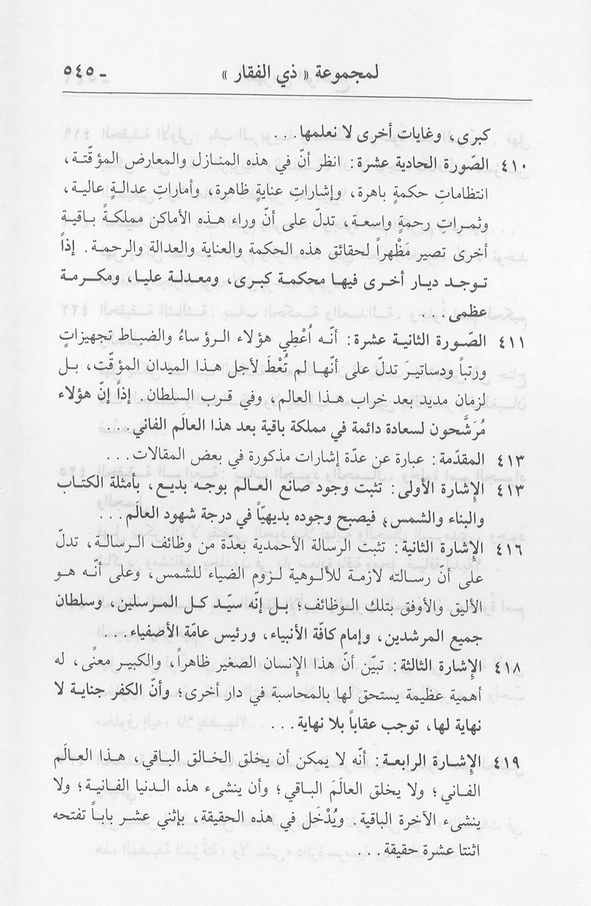 لمجموعة « ذي الفقار » ـ ٥٤٥
كبرى، وغايات أخرى لا نعلمها...
٤١٠ الصّورة الحادية عشرة: انظر أنّ في هذه المنازل والمعارض المؤقّتة،
انتظاماتِ حكمةٍ باهرة، وإشاراتِ عنايةٍ ظاهرة، وأماراتِ عدالةٍ عالية،
وثمراتِ رحمةٍ واسعة، تدلّ على أنّ وراء هذه الأماكن مملكةً باقية
أخرى تصير مَظْهراً لحقائق هذه الحكمة والعناية والعدالة والرحمة. إذاً
توجد ديار أخرى فيها محكمة كبرى، ومعدلة عليا، ومكرمة
عظمى...
٤١١ الصّورة الثانية عشرة: أنّه اُعْطِي هؤلاء الرؤساءُ والضباط تجهيزاتٍ
ورتباً ودساتيرَ تدلّ على أنّها لم تُعْطَ لأجل هذا الميدان المؤقّت، بل
لزمان مديد بعد خراب هذا العالم، وفي قرب السلطان. إذاً إنّ هؤلاء
مُرَشَّحون لسعادة دائمة في مملكة باقية بعد هذا العالَم الفاني...
٤١٣ المقدّمة: عبارة عن عدّة إشارات مذكورة في بعض المقالات...
٤١٣ الإشارة الأولى: تثبت وجود صانع العالم بوجه بديع، بأمثلة الكتاب
والبناء والشمس؛ فيصبح وجوده بديهيّاً في درجة شهود العالَم...
٤١٦ الإشارة الثانية: تثبت الرسالة الأحمدية بعدّة من وظائف الرسالة، تدلّ
على أنّ رسالته لازمة للألوهية لزوم الضياء للشمس، وعلى أنّه هو
الأليق والأوفق بتلك الوظائف؛ بل إنّه سيّد كل المرسلين، وسلطان
جميع المرشدين، وإمام كافّة الأنبياء، ورئيس عامّة الأصفياء...
٤١٨ الإشارة الثالثة: تبيّن أنّ هذا الإنسان الصغير ظاهراً، والكبير معنًى، له
أهمية عظيمة يستحق لها بالمحاسبة في دار أخرى؛ وأنّ الكفر جناية لا
نهاية لها، توجب عقاباً بلا نهاية...
٤١٩ الإشارة الرابعة: أنّه لا يمكن أن يخلق الخالق الباقي، هذا العالَم
الفاني؛ ولا يخلق العالَمَ الباقي؛ وأن ينشىء هذه الدنيا الفانية؛ ولا
ينشىء الآخرة الباقية. ويُدْخَل في هذه الحقيقة، بإثني عشر باباً تفتحه
اثنتا عشرة حقيقة...